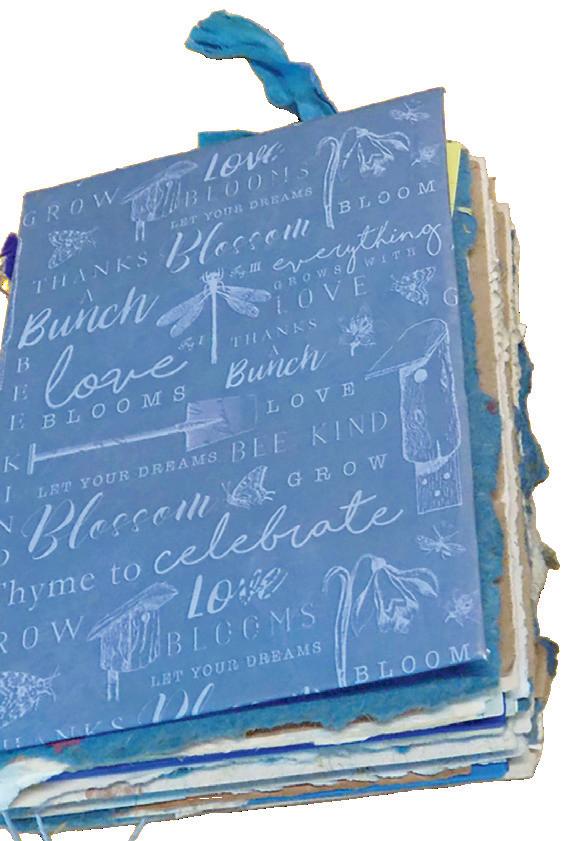 Love
GROW BLOOMS
LET YOUR DREAMS BLOOM
THANKS Blossom everything
A GROWS WITH
Bunch LOVE
THANKS
A
love Bunch
BLOOMS LOVE
BEE KIND
LET YOUR DREAMS BEE KIND
Blossom GROW
Thyme to celebrate
ROW Love
BLOOMS
LET YOUR DREAMS BLOOM
THANKS